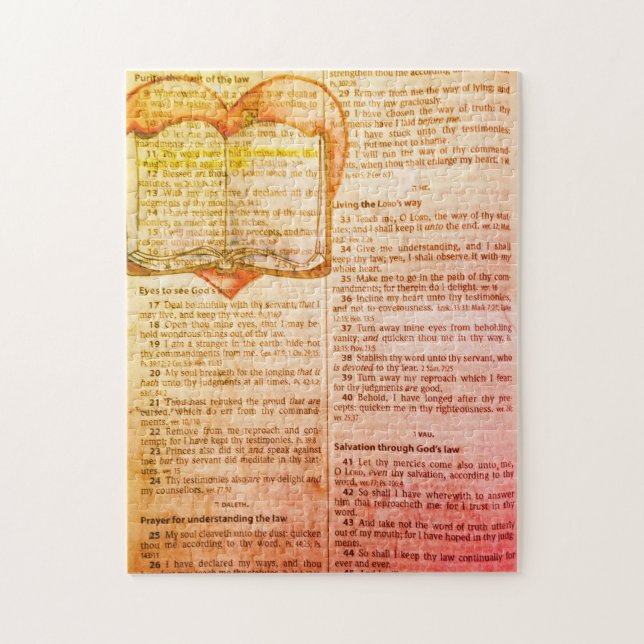 Purity, the fruit of the law
11 Thy word have I hid in mine heart, that
I might not sin against
12 Blessed art thou, O LORD: teach me thy
statutes.
13 With my lips have I declared all the
judgments of thy mouth.
14 I have rejoiced in the way of thy testi-
monies, as much as in all riches.
15 I will meditate in thy precepts, and have
respect unto thy ways.
Eyes to see God's law
17 Deal bountifully with thy servant, that I
may live, and keep thy word. Ps. 116:7
18 Open thou mine eyes, that I may be-
hold wondrous things out of thy law.
19 I am a stranger in the earth: hide not
thy commandments from me.
20 My soul breaketh for the longing that it
hath unto thy judgments at all times.
21 Thou hast rebuked the proud that are
cursed, which do err from thy command-
ments. ver. 10,118
22 Remove from me reproach and con-
tempt; for I have kept thy testimonies. Ps. 39:8
23 Princes also did sit and speak against
me: but thy servant did meditate in thy stat-
utes. ver. 15
24 Thy testimonies also are my delight and
my counsellors. ver. 77,92
DALETH.
Prayer for understanding the law
25 My soul cleaveth unto the dust: quicken
thou me according to thy word. Ps. 44:25; Ps.
143:11
26 I have declared my ways, and thou
strengthen thou me according
Ps. 107:26
29 Remove from me the way of lying: and
grant me thy law graciously.
30 I have chosen the way of truth: thy
judgments have I laid before me.
I have stuck unto thy testimonies:
put me not to shame.
I will run the way of thy command-
ments, when thou shalt enlarge my heart.
HE.
Living the LORD's way
33 Teach me, O LORD, the way of thy stat-
utes; and I shall keep it unto the end.
34 Give me understanding, and I shall
keep thy law; yea, I shall observe it with my
whole heart.
35 Make me to go in the path of thy com-
mandments; for therein do I delight. ver. 16
36 Incline my heart unto thy testimonies,
and not to covetousness.
37 Turn away mine eyes from beholding
vanity; and quicken thou me in thy way.
38 Stablish thy word unto thy servant, who
is devoted to thy fear. 2 Sam. 7:25
39 Turn away my reproach which I fear:
for thy judgments are good.
40 Behold, I have longed after thy pre-
cepts: quicken me in thy righteousness.
VAU.
Salvation through God's law
41 Let thy mercies come also unto me,
O LORD, even thy salvation, according to thy
word. ver. 77; Ps. 106:4
42 So shall I have wherewith to answer
him that reproacheth me: for I trust in thy
word.
43 And take not the word of truth utterly
out of my mouth; for I have hoped in thy judg-
ments.
44 So shall I keep thy law continually for
ever and ever.